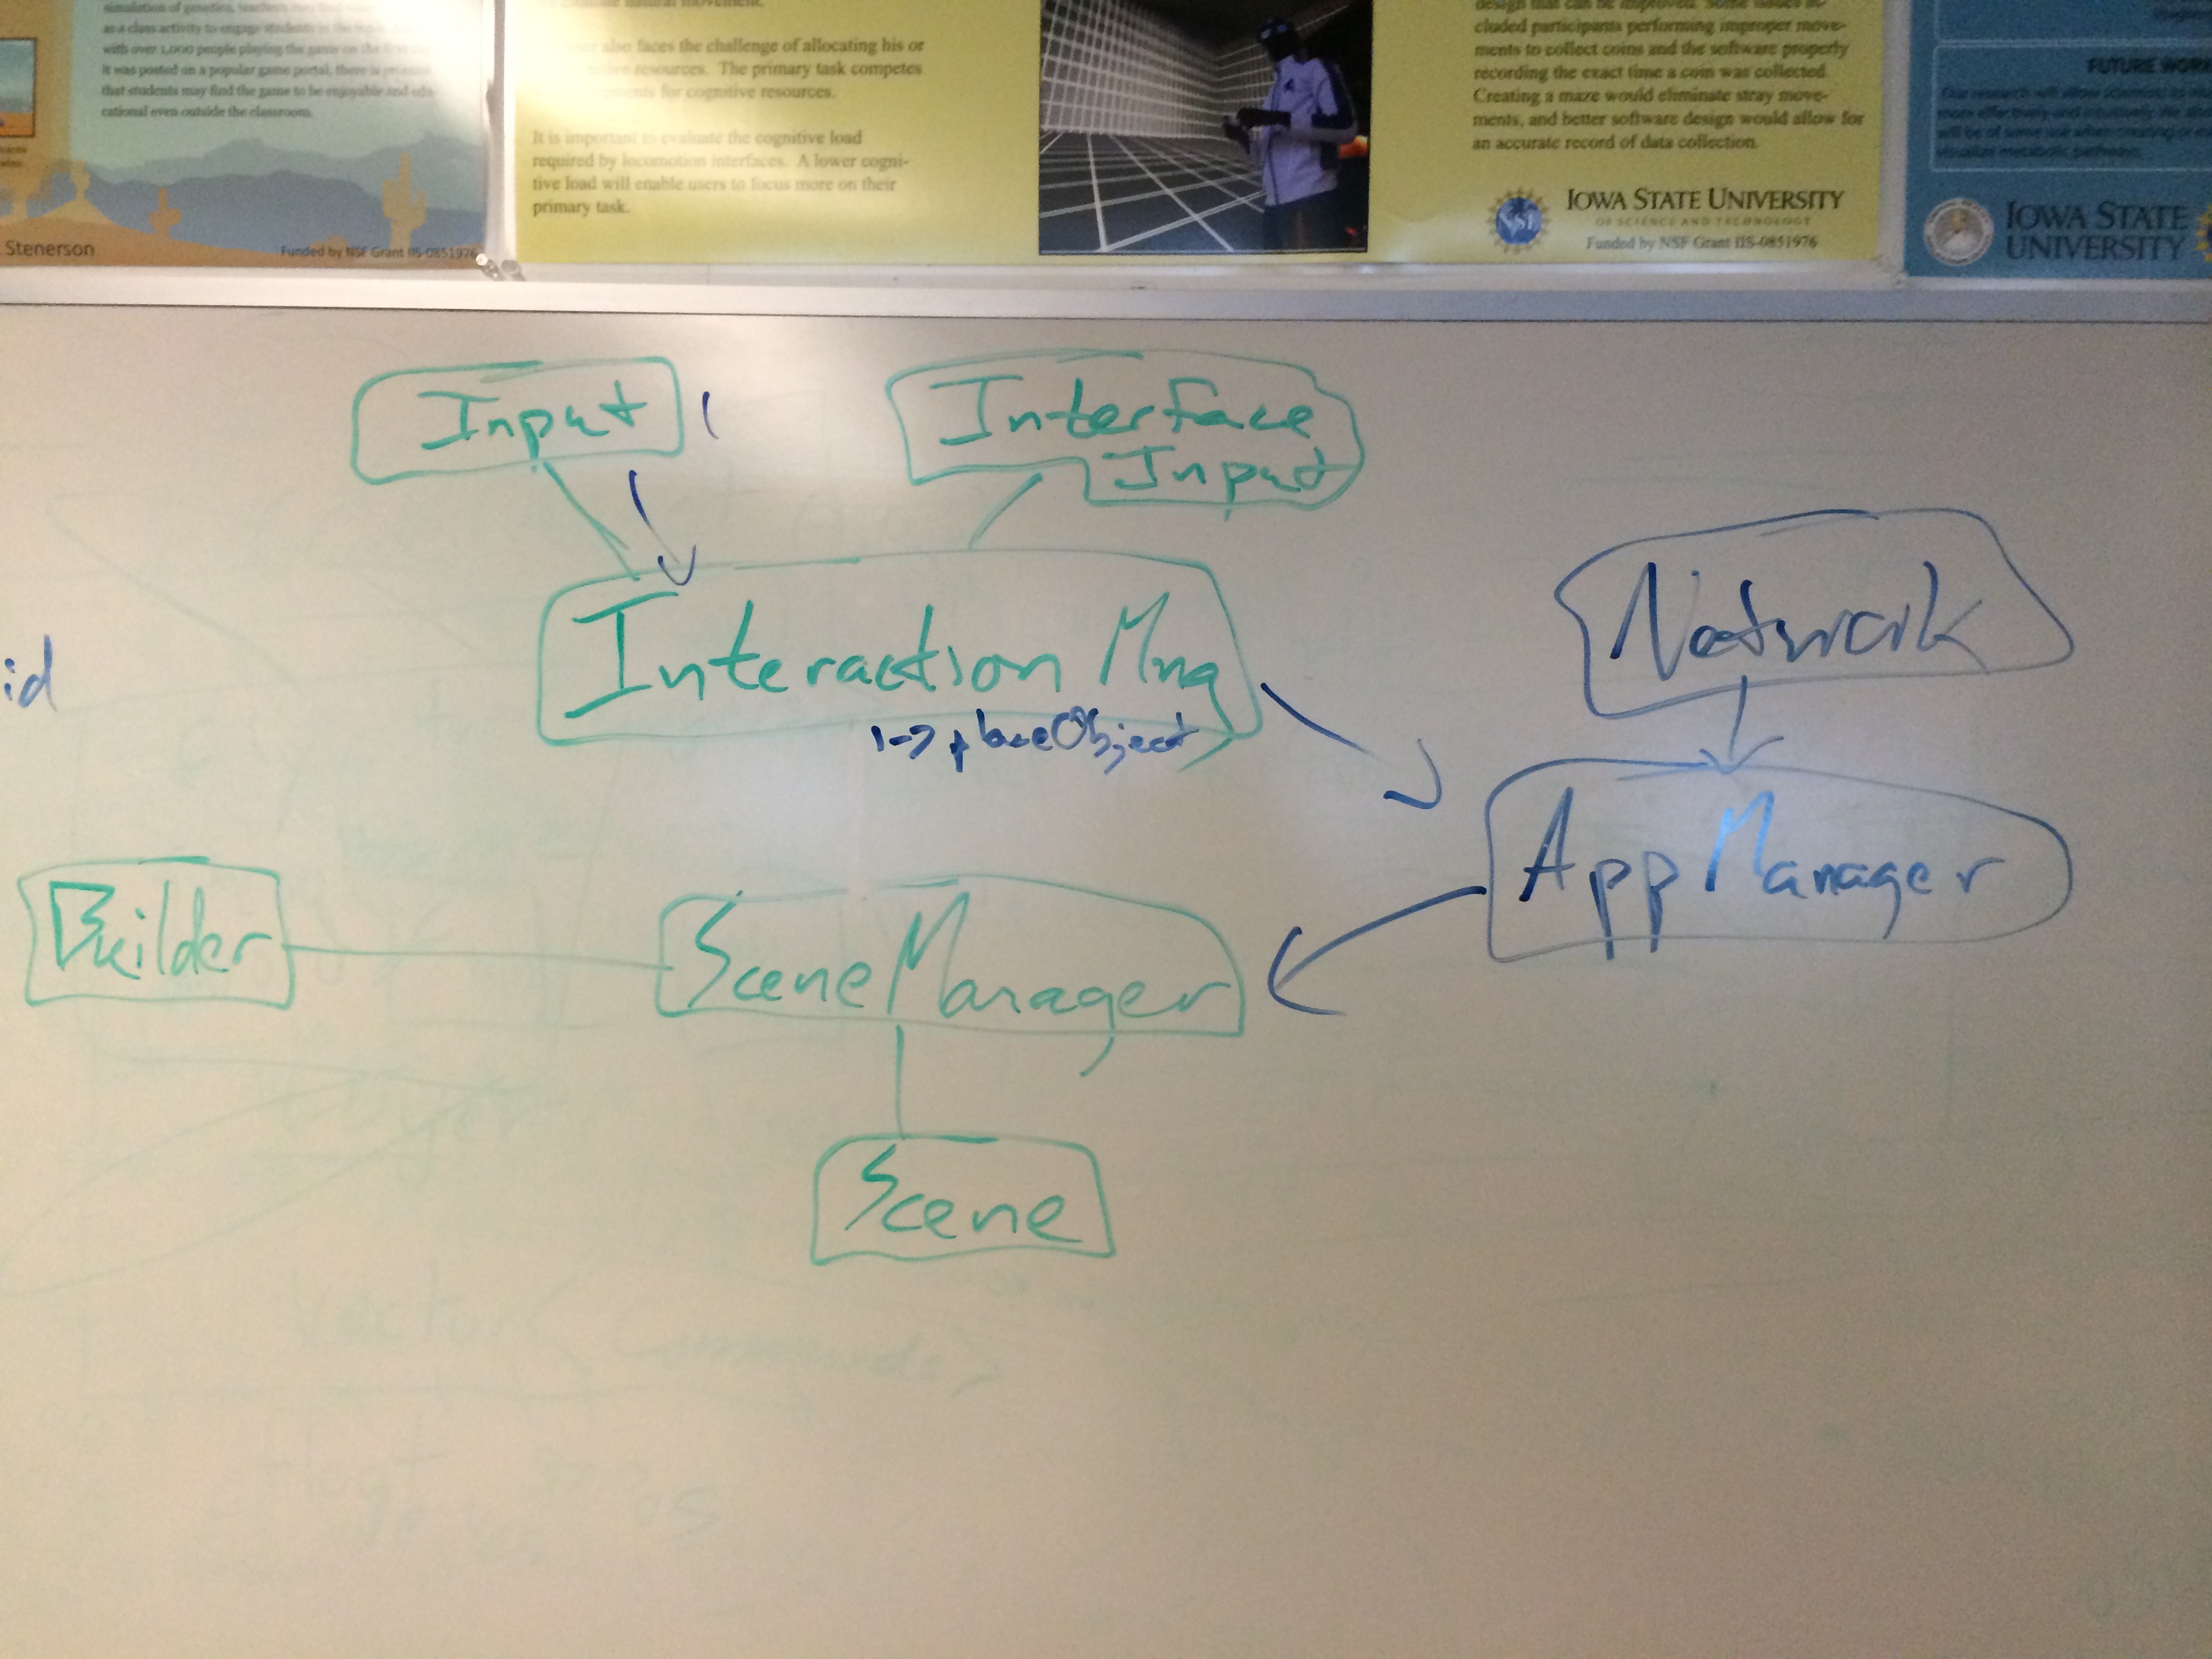 simulation of genetics, teachers may find
as a class activity to engage students in the
with over 1,000 people playing the game on the first
it was posted on a popular game portal, there is
that students may find the game to be enjoyable and edu-
cational even outside the classroom.
Stenerson
Funded by NSF Grant IIS-0851976
natural movement.
also faces the challenge of allocating his or
resources. The primary task competes
for cognitive resources.
It is important to evaluate the cognitive load
required by locomotion interfaces. A lower cogni-
tive load will enable users to focus more on their
primary task.
design that can be improved. Some issues in-
cluded participants performing improper move-
ments to collect coins and the software properly
recording the exact time a coin was collected.
Creating a maze would eliminate stray move-
ments, and better software design would allow for
an accurate record of data collection.
NSF
IOWA STATE UNIVERSITY
OF SCIENCE AND TECHNOLOGY
Funded by NSF Grant IIS-0851976
FUTURE WORK
IOWA STATE
UNIVERSITY
Input
Interface
Input
Interaction Mng
1-> placeObject
id
Network
AppManager
Builder
SceneManager
Scene
vector
float